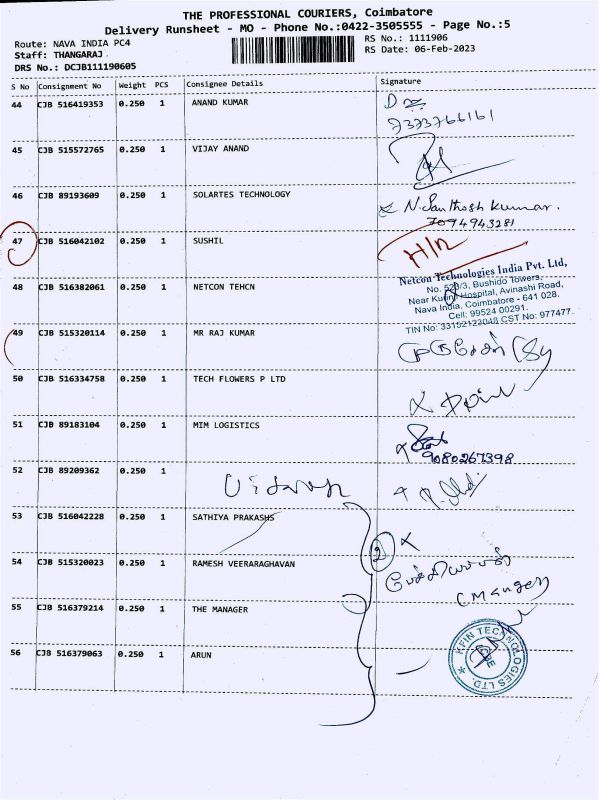 THE PROFESSIONAL COURIERS, Coimbatore
Delivery Runsheet - MO - Phone No.:0422-3505555 - Page No.:5
Route: NAVA INDIA PC4
Staff: THANGARAJ
DRS No.: DCJB111190605
RS No.: 1111906
RS Date: 06-Feb-2023
S No Consignment No Weight PCS Consignee Details Signature
44 CJB 516419353 0.250 1 ANAND KUMAR
7373766161
45 CJB 515572765 0.250 1 VIJAY ANAND
46 CJB 89193609 0.250 1 SOLARTES TECHNOLOGY N. Santhosh Kumar.
7094943281
47 CJB 516042102 0.250 1 SUSHIL
Netcon Technologies India Pvt. Ltd,
48 CJB 516382061 0.250 1 NETCON TEHCN No. 529/3, Bushido Towers,
Near Hospital, Avinashi Road,
Nava India, Coimbatore - 641 028.
Cell: 99524 00291.
TIN No: 33152123048 CST No: 977477.
49 CJB 515320114 0.250 1 MR RAJ KUMAR
50 CJB 516334758 0.250 1 TECH FLOWERS P LTD
51 CJB 89183104 0.250 1 MIM LOGISTICS
9080267398
52 CJB 89209362 0.250 1
53 CJB 516042228 0.250 1 SATHIYA PRAKASHS
2
54 CJB 515320023 0.250 1 RAMESH VEERARAGHAVAN
55 CJB 516379214 0.250 1 THE MANAGER
56 CJB 516379063 0.250 1 ARUN
KFIN TECHNOLOGIES LTD.